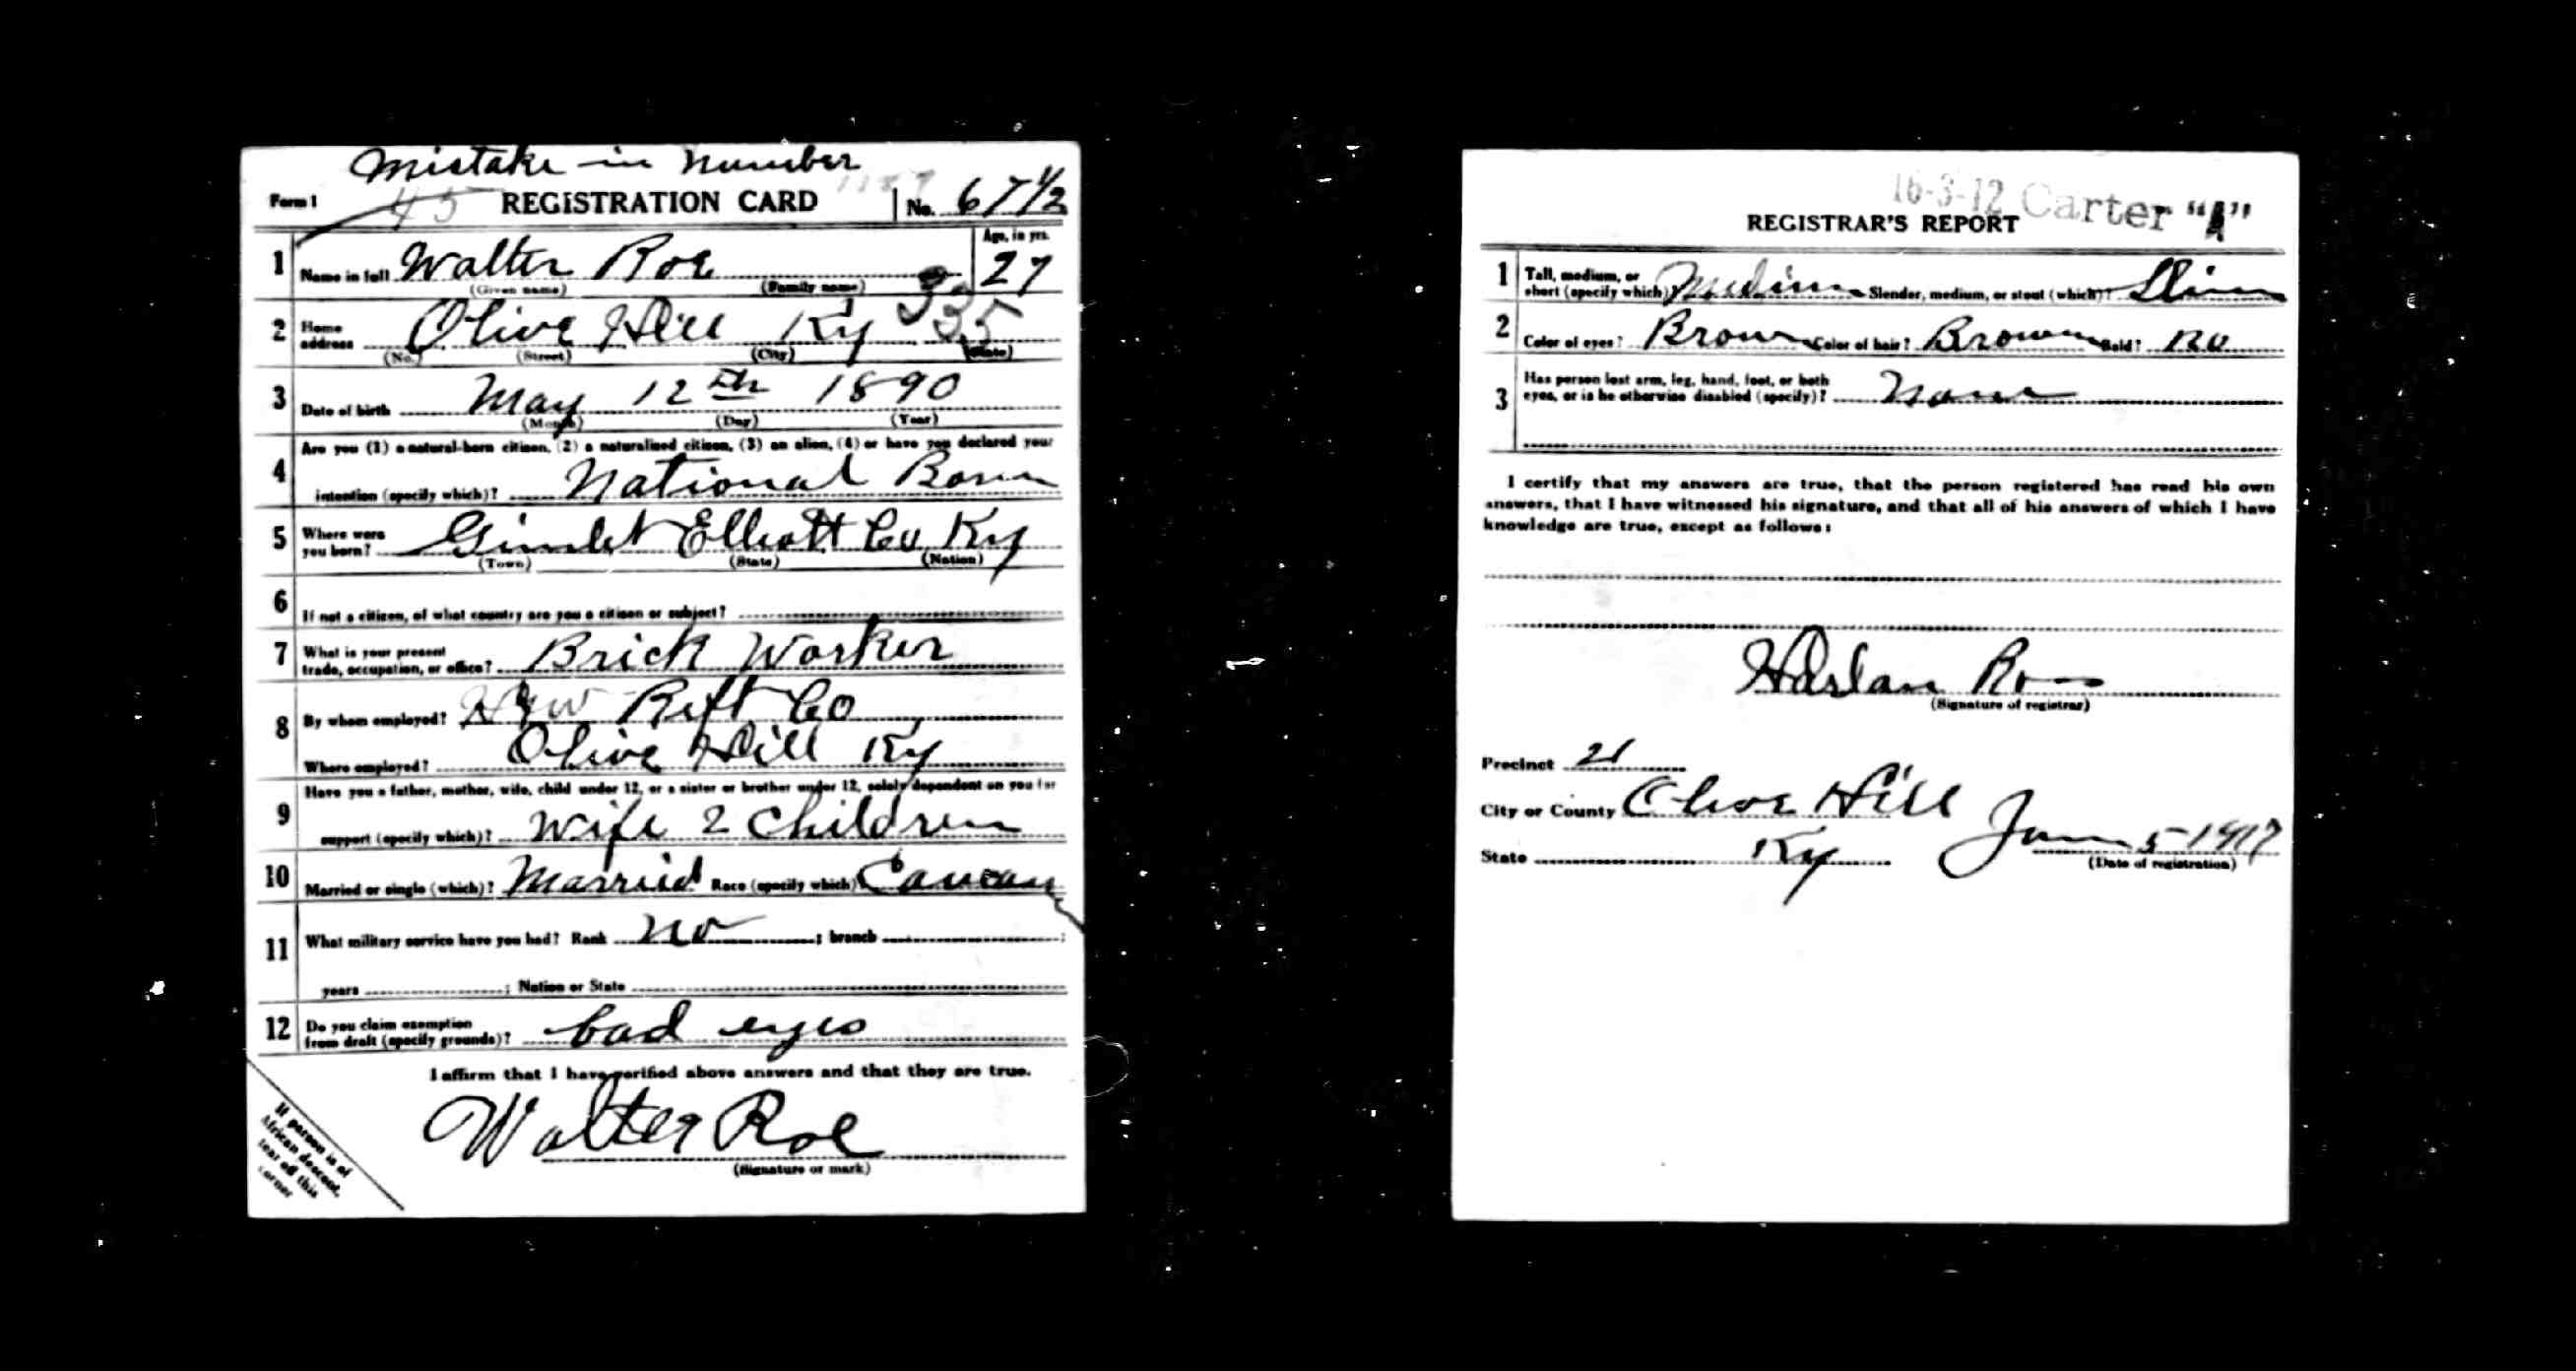 Mistake in Number
Form 1 45 REGISTRATION CARD No. 67 1/2
1 Name in full Walter Roe Age, in yrs. 27
(Given name) (Family name)
335
2 Home address Olive Hill Ky
(No.) (Street) (City) (State)
3 Date of birth May 12th 1890
(Month) (Day) (Year)
4 Are you (1) a natural-born citizen, (2) a naturalized citizen, (3) an alien, (4) or have you declared your
intention (specify which)? National Born
5 Where were you born? Gimlet Elliott Co Ky
(Town) (State) (Nation)
6 If not a citizen, of what country are you a citizen or subject?
7 What is your present trade, occupation, or office? Brick Worker
8 By whom employed? Rift Co
Where employed? Olive Hill Ky
9 Have you a father, mother, wife, child under 12, or a sister or brother under 12, solely dependent on you for
support (specify which)? Wife 2 Children
10 Married or single (which)? Married Race (specify which)
11 What military service have you had? Rank no ; branch ;
years ; Nation or State
12 Do you claim exemption from draft (specify grounds)? bad eyes
I affirm that I have verified above answers and that they are true.
Walter Roe
(Signature or mark)
If person is of
African descent,
tear off this
corner
16-3-12 Carter "A"
REGISTRAR'S REPORT
1 Tall, medium, or short (specify which)? Medium Slender, medium, or stout (which)? Slim
2 Color of eyes? Brown Color of hair? Brown Bald? no
3 Has person lost arm, leg, hand, foot, or both
eyes, or is he otherwise disabled (specify)? None
I certify that my answers are true, that the person registered has read his own
answers, that I have witnessed his signature, and that all of his answers of which I have
knowledge are true, except as follows:
Harlan
(Signature of registrar)
Precinct 21
City or County Olive Hill
State Ky June 5-1917
(Date of registration)